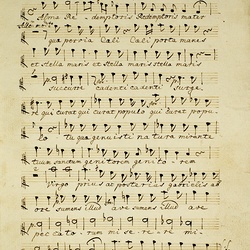 Alma Redemptoris Redemptoris mater
quae pervia Caeli Caeli porta manes
et stella maris et stella maris stella maris
succurre cadenti cadenti Surge
re qui curat qui curat populo qui curat popu
lo Tu quae genuisti natura mirante
tuum sanctum genitorem genito rem
Virgo prius ac posterius gabrielis ab
ore sumens illud ave sumens illud ave
peccatorum miserere mi